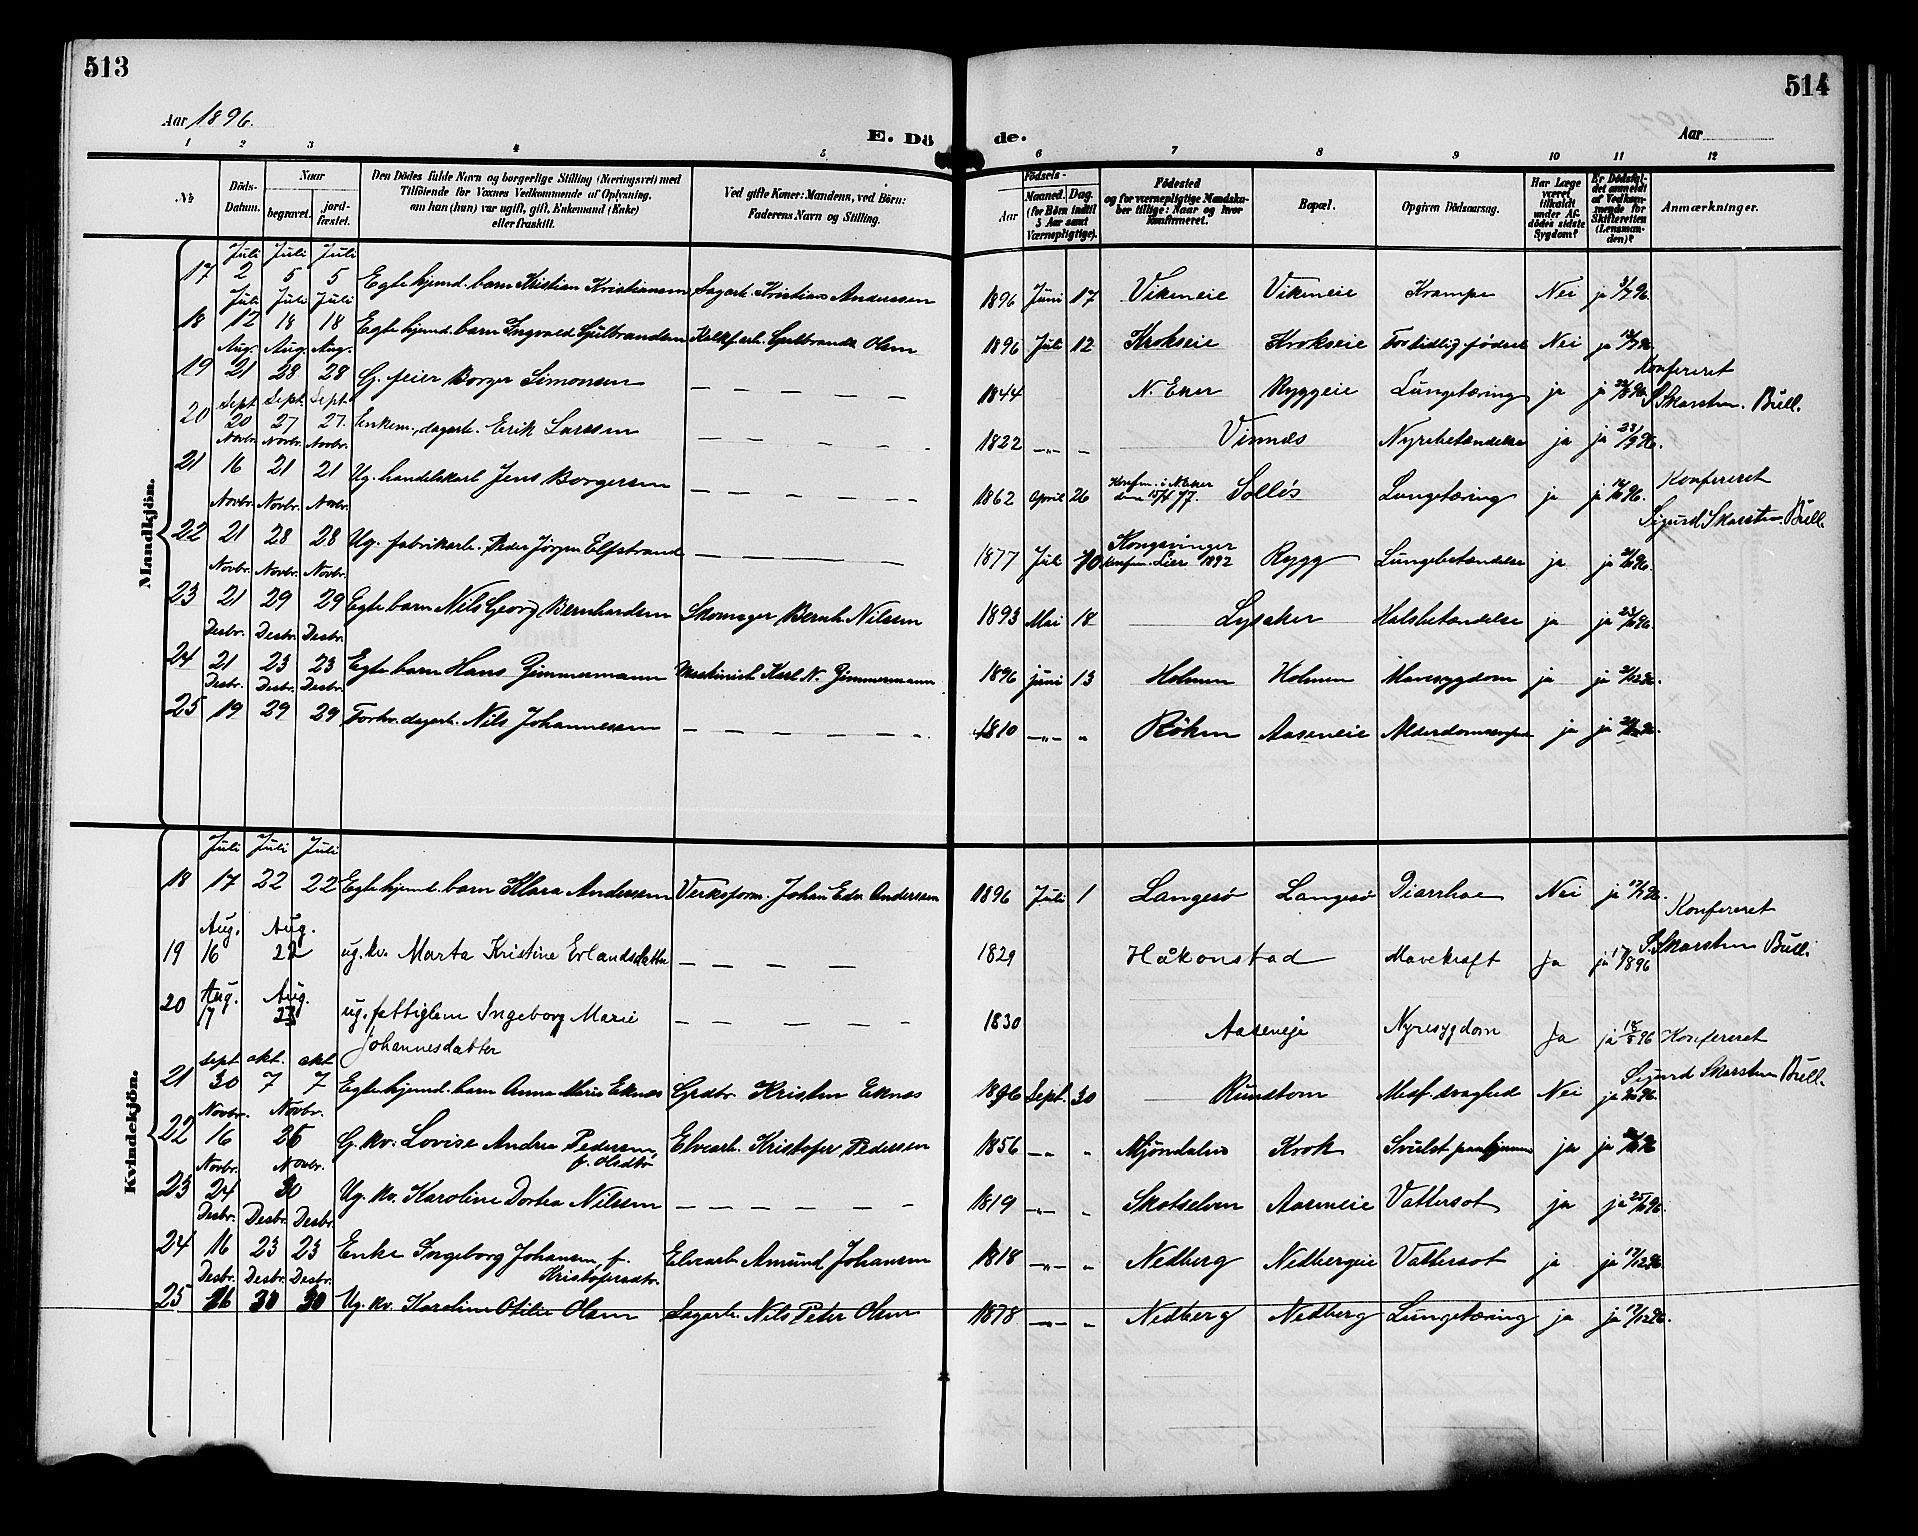 513
514
Aar 1896.
Aar
E. Dö de.
1 2 3 4 5 6 7 8 9 10 11 12
№
Döds-Datum.
Naar
begravet.
jord-fæstet.
Den Dödes fulde Navn og borgerlige Stilling (Næringsvei) med Tilföiende for Voxnes Vedkommende af Oplysning, om han (hun) var ugift, gift, Enkemand (Enke) eller fraskilt.
Ved gifte Koner: Mandens, ved Börn: Faderens Navn og Stilling.
Födsels-
Aar
Maaned. Dag. (for Börn indtil 5 Aar samt Værnepligtige).
Födested og for værnepligtige Mandskaber tillige: Naar og hvor Konfirmeret.
Bopæl.
Opgiven Dödsaarsag.
Har Læge været tilkaldt under Afdödes sidste Sygdom?
Er Dödsfaldet anmeldt af Vedkommende for Skifteretten (Lensmanden)?
Anmærkninger.
Mandkjön.
17 Juli 2 Juli 5 Juli 5 Egte hjemd. barn Kristian Kristiansen Sagarb. Kristian Anderssen 1896 Juni 17 Vikeneie Vikeneie Krampe Nei ja 3/7 96.
18 Juli 12 Juli 18 Juli 18 Egte hjemd. barn Ingvald Gulbrandsen Kalkfarb. Gulbrand Olsen 1896 Juli 12 Krokseie Krokseie For tidlig födsel Nei ja
19 Aug. 21 Aug. 28 Aug. 28 G. feier Borger Simonsen — — — — — 1844 N. Eker Ryggeie Lungetæring ja ja
Konfereret
S. Skarsten. Bull.
20 Sept 20 Sept. 27 Sept. 27. Enkem., dagarb. Erik Larssen — — — — — 1822 —„— „ Vinnæs Nyrebetændelse ja ja 23/9 96.
21 Novbr. 16 Novbr. 21 Novbr. 21 Ug. handelskarl Jens Borgersen — — — — — 1862 April 26 Konfm. i N. Eker den 15/4 77. Sollös Lungetæring ja ja
Konfereret
Sigurd Skarsten. Bull.
22 Novbr. 21 Novbr. 28 Novbr. 28 Ug. fabrikarb. Peder Jörgen Elfstrand — — — — — 1877 Juli 10 Kongsvinger konfm. Lier 1892 Rygg Lungebetændelse ja ja
23 Novbr. 21 Novbr. 29 Novbr. 29 Egte barn Nils Georg Bernhardsen Skomager Bernh. Nilssen 1893 Mai 18 — Lysaker Halsbetændelse ja ja
24 Desbr. 21 Desbr. 23 Desbr. 23 Egte barn Hans Zimmermann Maskinist Karl N. Zimmermann 1896 juni 13 Holmen Holmen Mavesygdom ja ja
25 Desbr. 19 Desbr. 29 Desbr. 29 Forhv. dagarb. Nils Johannessen — — — — — 1810 —„— „ Röken Aaseneie ja ja
Kvindekjön.
18 Juli 17 Juli 22 Juli 22 Egte hjemd. barn Klara Anderssen Verksform. Johan Edv. Anderssen 1896 Juli 1 Langesö Langesö Diarrhoe Nei ja 17/7 96.
19 Aug. 16 Aug. 22 ug. kv. Marta Kristine Erlandsdatter — — — — 1829 Håkonstad Mavekræft Ja ja 17/8 96
Konfereret
S. Skarsten Bull.
20 Aug. 17 Aug. 23 ug. fattiglem Ingeborg Marie Johannesdatter — — — — — 1830 Aaseneje Nyresygdom Ja ja 18/8 96
Konfereret
Sigurd Skarsten Bull.
21 Sept 30 okt. 7 okt. 7 Egte hjemd. barn Anna Marie Eknæs Grdbr. Kristen Eknæs 1896 Sept. 30 — Rundtom Medf. svaghed Nei ja
22 Novbr. 16 Novbr. 26 G. kv. Lovise Andrea Pedersen, f. Olsdtr Elvearb. Kristofer Pedersen 1856 —„ „ Mjöndalen Krok Svulst paa hjernen ja ja
23 Novbr. 24 Novbr. 30 Ug. kv. Karoline Dortea Nilssen — — — — — 1819 —„— „ Skotselven Aaseneie Vattersot ja ja 25/11 96.
24 Desbr. 16 Desbr. 23 Desbr. 23 Enke Ingeborg Johansen, f. Kristofersdtr. Elvearb. Amund Johansen 1818 —„— „ Nedberg Nedbergeie Vattersot ja ja 17/12 96.
25 Desbr. 16 Desbr. 30 Desbr. 30 Ug. kv. Karoline Otilie Olsen Sagarb. Nils Peter Olsen 1878 —„— „ Nedberg Nedberg Lungetæring ja ja 17/12 96.